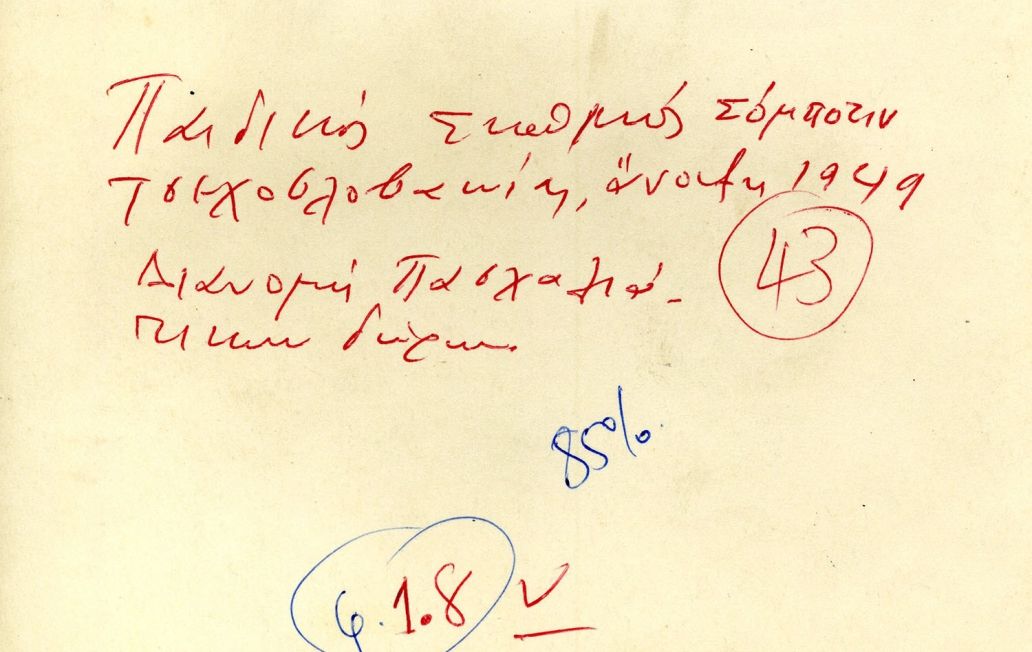 Παιδικός Σταθμός Σόμποτιν
Τσεχοσλοβακία, ἄνοιξη 1949
43
Διανομή Πασχαλιά-
τικων δώρων.
85%
φ.1.8 ν